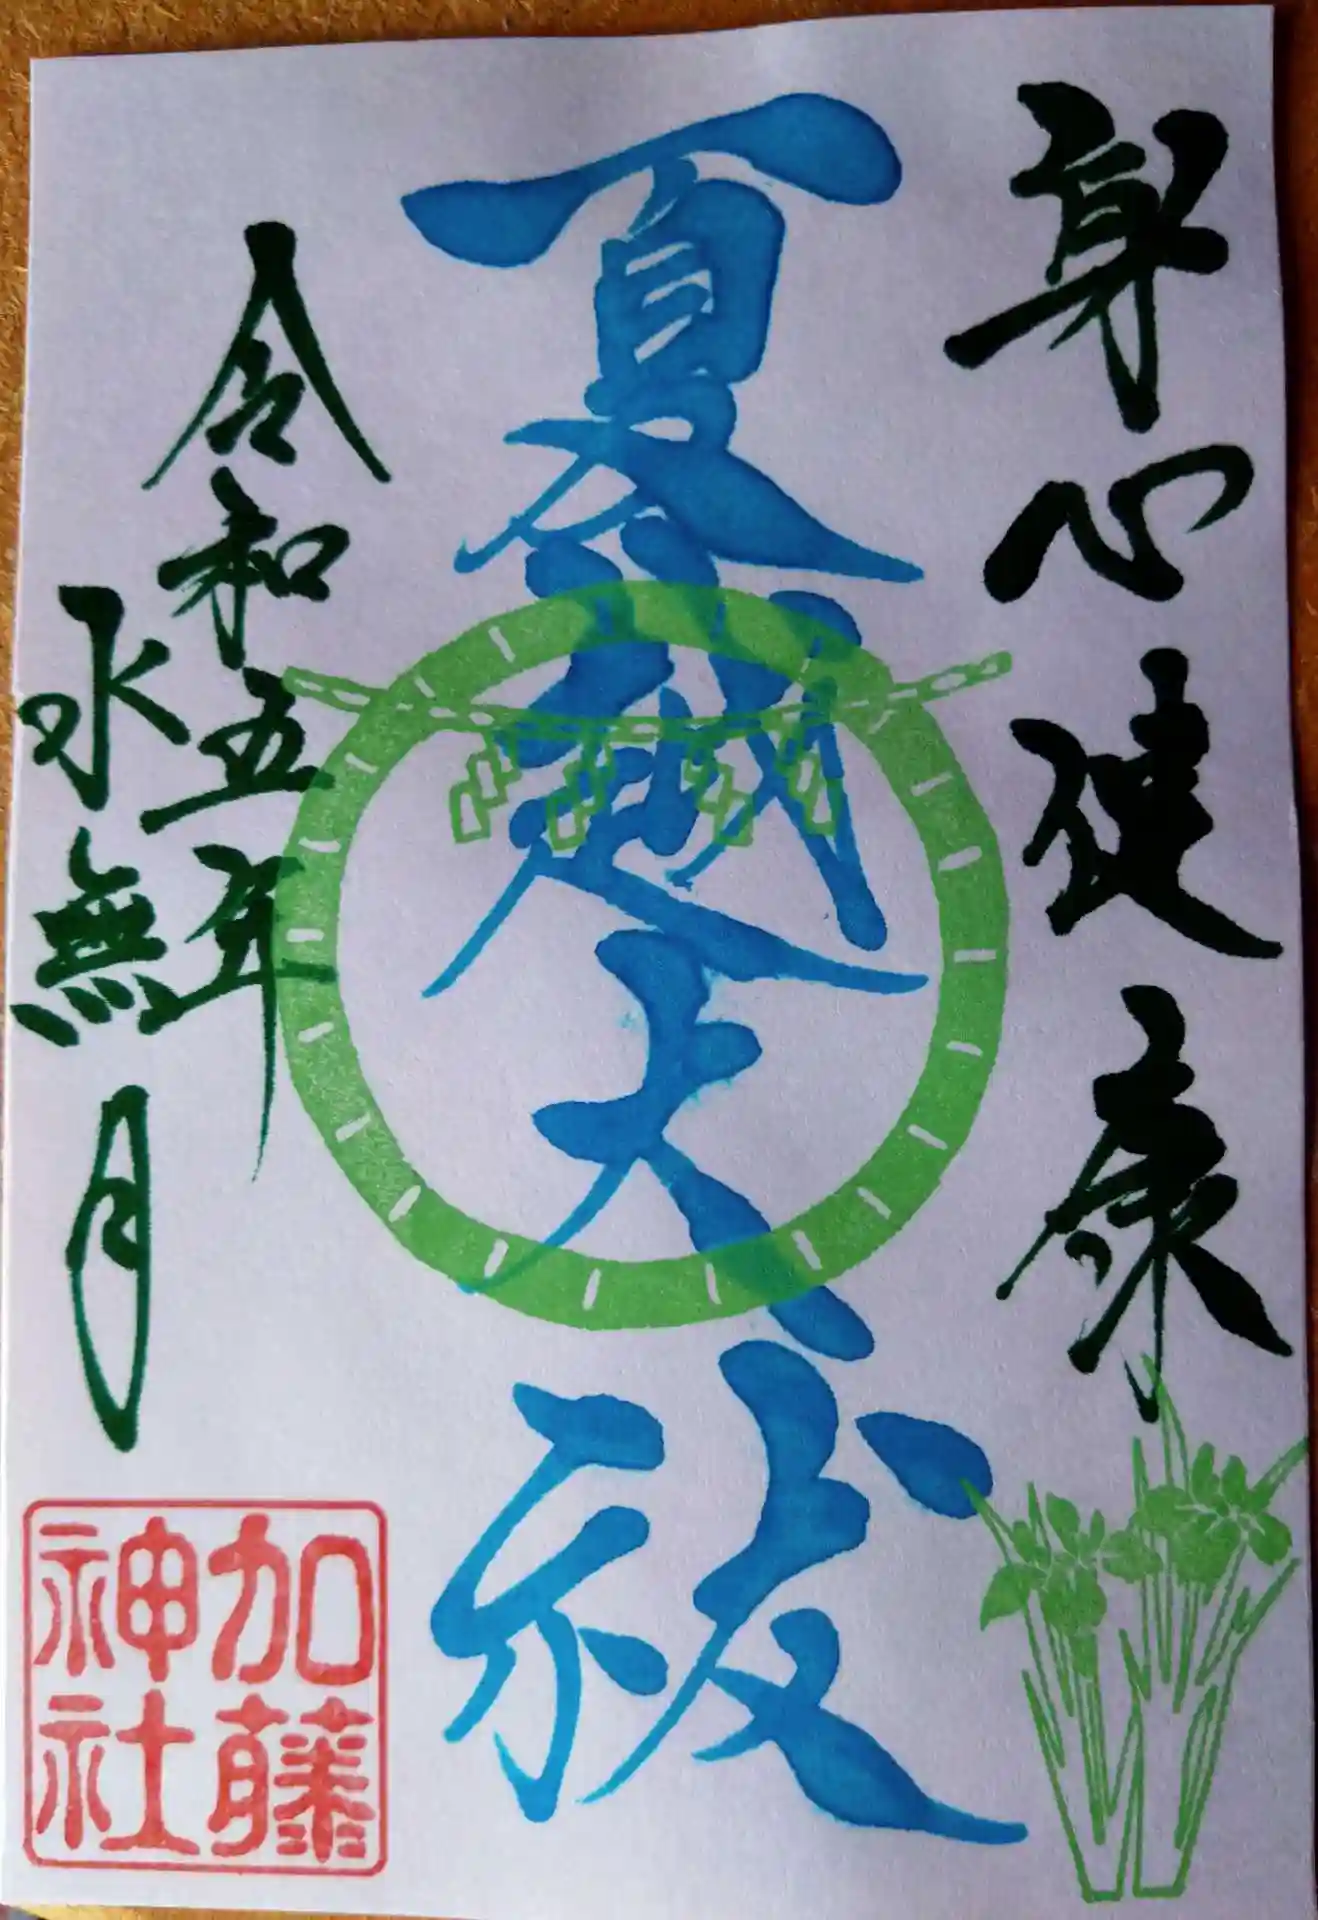 身心健康
夏越大祓
令和五年
水無月
加藤
神社